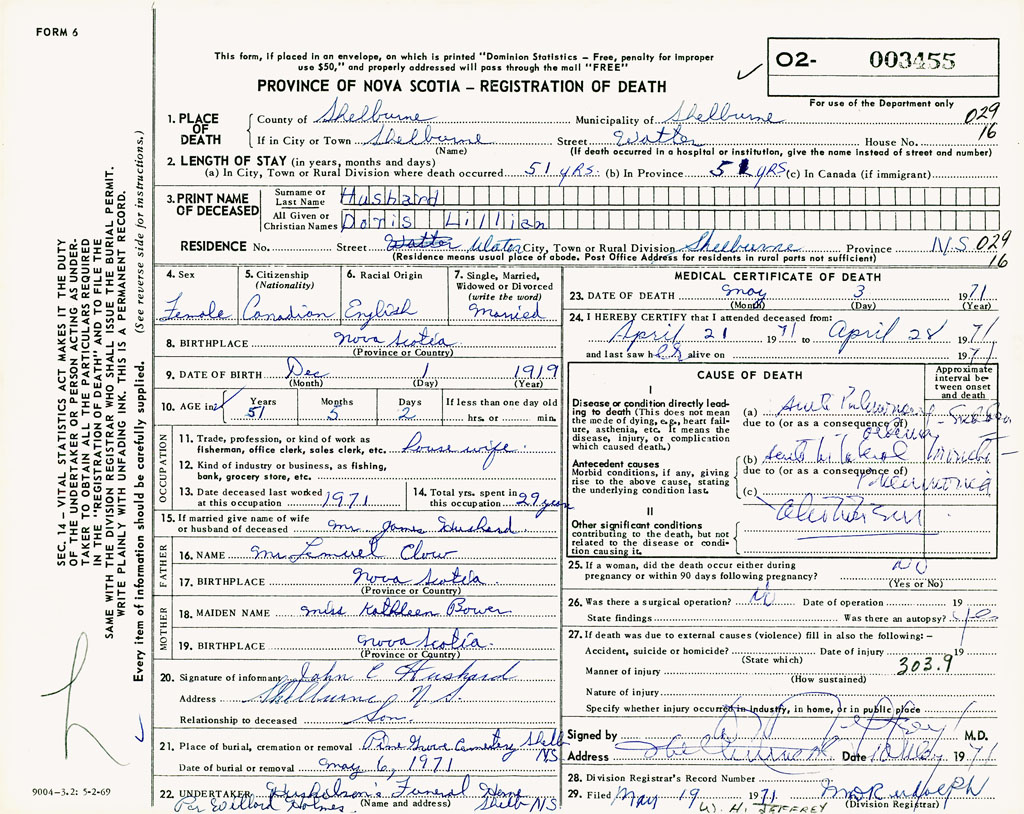 FORM 6
This form, if placed in an envelope, on which is printed "Dominion Statistics – Free, penalty for improper
use $50," and properly addressed will pass through the mail "FREE"
O2- 003455
For use of the Department only
PROVINCE OF NOVA SCOTIA – REGISTRATION OF DEATH
029
16
1. PLACE OF DEATH
County of Shelburne Municipality of Shelburne
If in City or Town Shelburne Street Watter House No.
(Name) (If death occurred in a hospital or institution, give the name instead of street and number)
2. LENGTH OF STAY (in years, months and days)
(a) In City, Town or Rural Division where death occurred 51 yrs. (b) In Province 51 yrs (c) In Canada (if immigrant)
3. PRINT NAME OF DECEASED
Surname or Last Name Hushard
All Given or Christian Names Doris Lillian
RESIDENCE No. Street Watter Water City, Town or Rural Division Shelburne Province N.S. 029
(Residence means usual place of abode. Post Office Address for residents in rural parts not sufficient) 16
4. Sex Female
5. Citizenship (Nationality) Canadian
6. Racial Origin English
7. Single, Married, Widowed or Divorced (write the word) Married
8. BIRTHPLACE Nova Scotia
(Province or Country)
9. DATE OF BIRTH Dec 1 1919
(Month) (Day) (Year)
10. AGE in Years 51 Months 5 Days 2 If less than one day old
hrs. or min.
OCCUPATION
11. Trade, profession, or kind of work as
fisherman, office clerk, sales clerk, etc. house wife
12. Kind of industry or business, as fishing,
bank, grocery store, etc.
13. Date deceased last worked at this occupation 1971
14. Total yrs. spent in this occupation 29 years
15. If married give name of wife
or husband of deceased Mr. James Hushard
FATHER
16. NAME Mr Lemuel Clow
17. BIRTHPLACE Nova Scotia
(Province or Country)
MOTHER
18. MAIDEN NAME Miss Kathleen Bower
19. BIRTHPLACE Nova Scotia
(Province or Country)
20. Signature of informant John C Hushard
Address Shelburne N S
Relationship to deceased Son
21. Place of burial, cremation or removal Pine Grove Cemetery Shelb NS
Date of burial or removal May 6, 1971
22. UNDERTAKER Funeral Home
(Name and address) Shelb N.S
Per Willard Holmes
MEDICAL CERTIFICATE OF DEATH
23. DATE OF DEATH May 3 1971
(Month) (Day) (Year)
24. I HEREBY CERTIFY that I attended deceased from:
April 21 1971 to April 28 1971
and last saw her alive on 1971
CAUSE OF DEATH
Approximate interval between onset and death
I
Disease or condition directly leading to death (This does not mean the mode of dying, e.g., heart failure, asthenia, etc. It means the disease, injury, or complication which caused death.)
(a) Acute Pulmonary
due to (or as a consequence of)
Antecedent causes
Morbid conditions, if any, giving rise to the above cause, stating the underlying condition last.
(b) Acute
due to (or as a consequence of)
Pneumonia
(c)
II
Other significant conditions contributing to the death, but not related to the disease or condition causing it.
25. If a woman, did the death occur either during
pregnancy or within 90 days following pregnancy? NO
(Yes or No)
26. Was there a surgical operation? Date of operation 19
State findings Was there an autopsy?
27. If death was due to external causes (violence) fill in also the following:–
Accident, suicide or homicide? Date of injury 19
(State which)
Manner of injury 303.9
(How sustained)
Nature of injury
Specify whether injury occurred in industry, in home, or in public place
Signed by M.D.
Address Date 1971
28. Division Registrar's Record Number
29. Filed May 19 1971 M D Rudolph
W. H. JEFFREY (Division Registrar)
SEC. 14 – VITAL STATISTICS ACT MAKES IT THE DUTY
OF THE UNDERTAKER OR PERSON ACTING AS UNDERTAKER
TO OBTAIN ALL THE PARTICULARS REQUIRED
IN THE "REGISTRATION OF DEATH" AND TO FILE THE
SAME WITH THE DIVISION REGISTRAR WHO SHALL ISSUE THE BURIAL PERMIT.
WRITE PLAINLY WITH UNFADING INK. THIS IS A PERMANENT RECORD.
Every item of information should be carefully supplied. (See reverse side for instructions.)
9004-3.2: 5-2-69